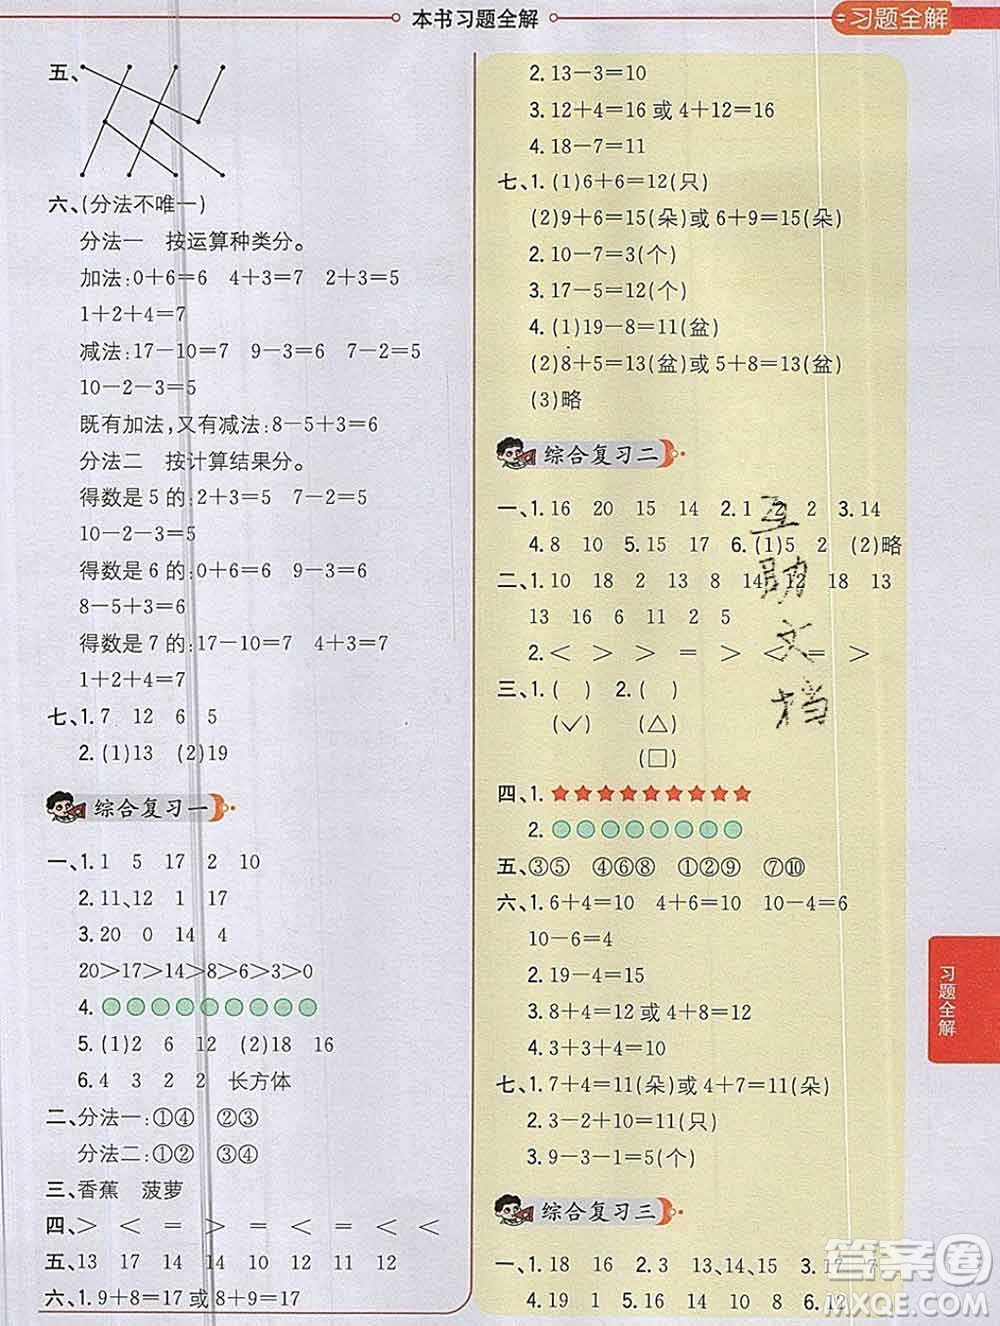 本书习题全解
习题全解
五、
六、(分法不唯一)
分法一 按运算种类分。
加法:0+6=6 4+3=7 2+3=5
1+2+4=7
减法:17-10=7 9-3=6 7-2=5
10-2-3=5
既有加法,又有减法:8-5+3=6
分法二 按计算结果分。
得数是 5 的:2+3=5 7-2=5
10-2-3=5
得数是 6 的:0+6=6 9-3=6
8-5+3=6
得数是 7 的:17-10=7 4+3=7
1+2+4=7
七、1. 7 12 6 5
2. (1)13 (2)19
综合复习一
一、1. 1 5 17 2 10
2. 11、12 1 17
3. 20 0 14 4
20>17>14>8>6>3>0
4.
5. (1)2 6 12 (2)18 16
6. 4 3 2 2 长方体
二、分法一:①④ ②③
分法二:①② ③④
三、香蕉 菠萝
四、> < = > < = < <
五、13 17 14 14 10 12 11 12
六、1. 9+8=17 或 8+9=17
2. 13-3=10
3. 12+4=16 或 4+12=16
4. 18-7=11
七、1. (1)6+6=12(只)
(2)9+6=15(朵)或 6+9=15(朵)
2. 10-7=3(个)
3. 17-5=12(个)
4. (1)19-8=11(盆)
(2)8+5=13(盆)或 5+8=13(盆)
(3)略
综合复习二
一、1. 16 20 15 14 2. 1 2 2 3. 14
4. 8 10 5. 15 17 6. (1)5 2 (2)略
二、1. 10 18 2 13 8 14 12 18 13
13 16 11 2 5
2. < > > = > < = >
三、1. ( ) 2. ( )
(✓) (△)
(□)
四、1. ★★★★★★★★★
2.
五、③⑤ ④⑥⑧ ①②⑨ ⑦⑩
六、1. 6+4=10 4+6=10 10-4=6
10-6=4
2. 19-4=15
3. 8+4=12 或 4+8=12
4. 3+3+4=10
七、1. 7+4=11(朵)或 4+7=11(朵)
2. 3-2+10=11(只)
3. 9-3-1=5(个)
综合复习三
一、1. 18 16 2. 3 14、15 3. 17 7
4. 19 1 5. 16 10 8 6. 12
互助文档
习题全解
答案圈
MXQE.COM